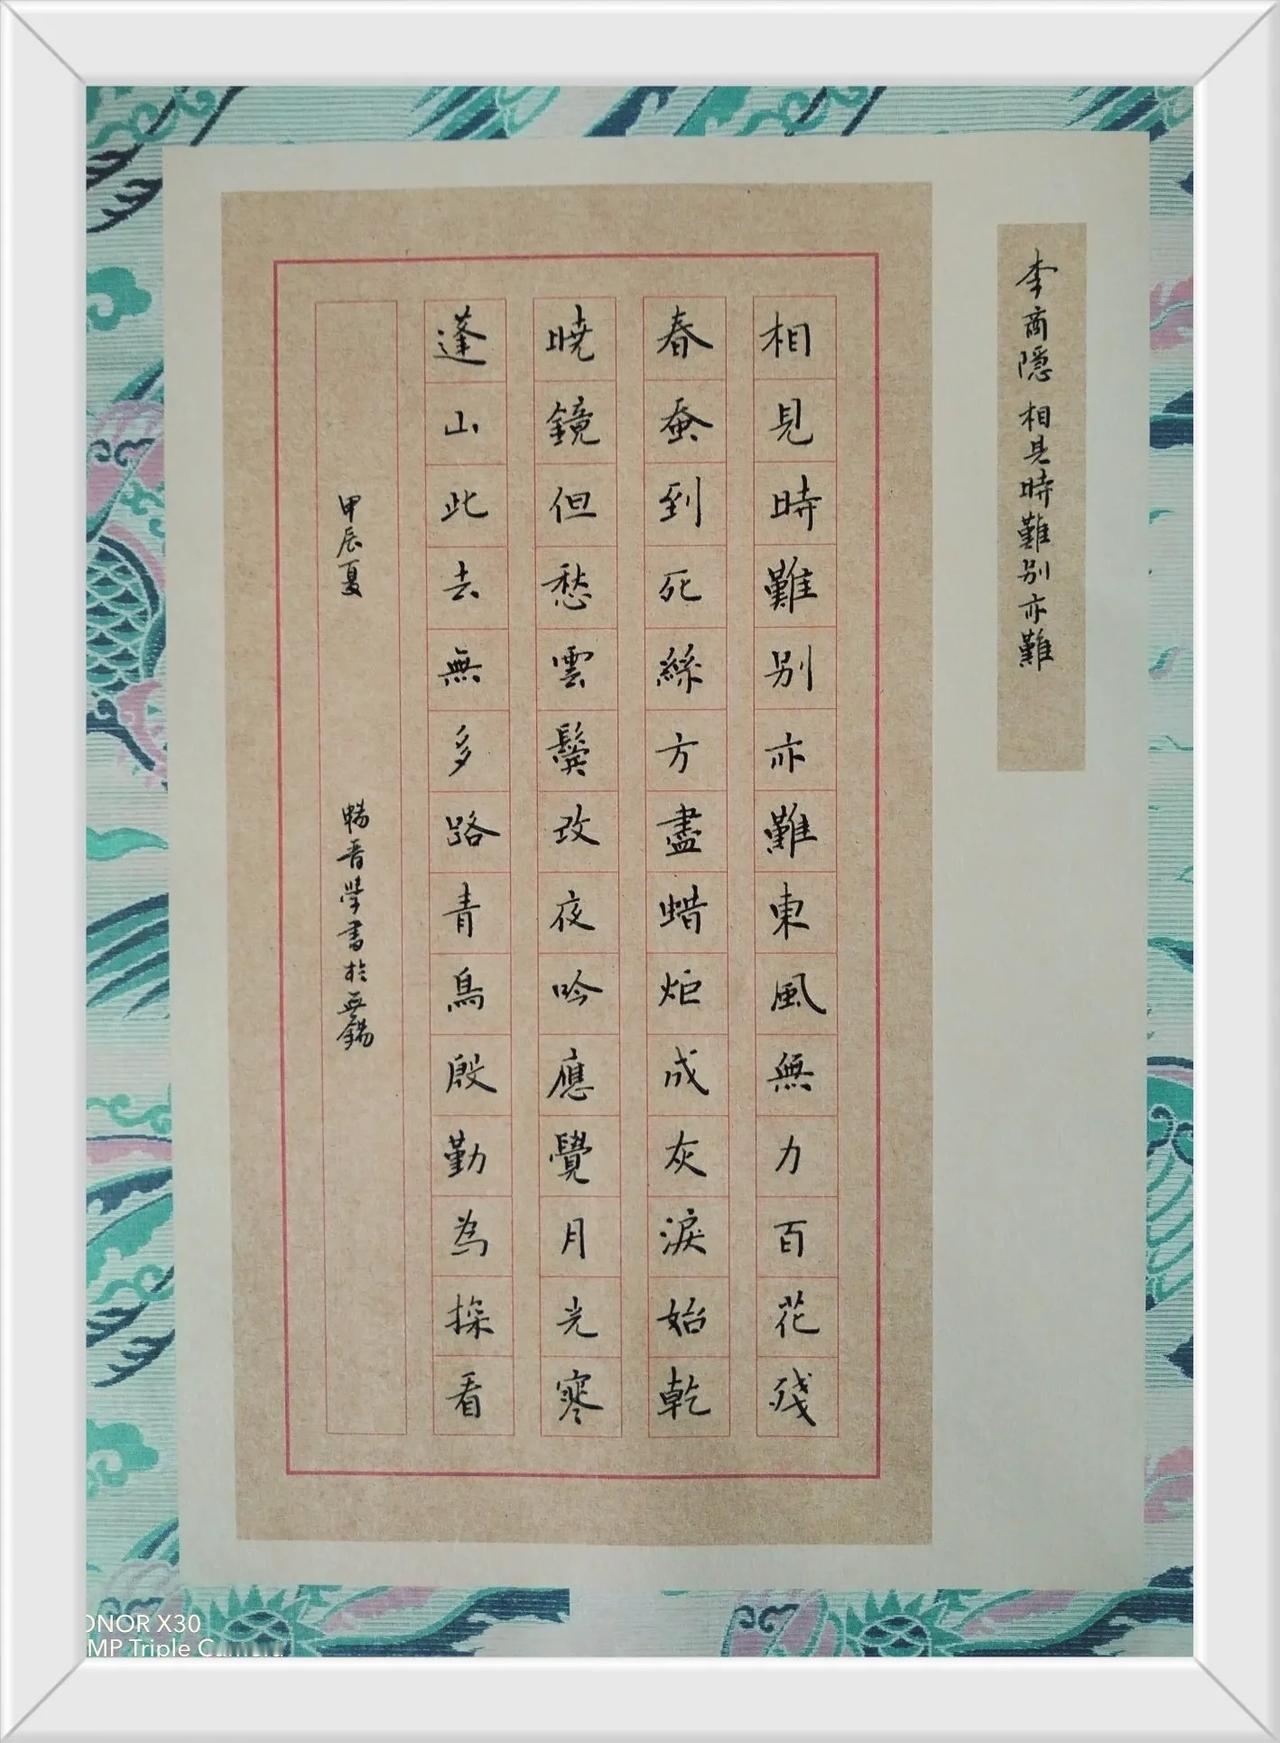 李商隱 相見時難别亦難
相見時難别亦難東風無力百花殘
春蚕到死絲方盡蜡炬成灰淚始乾
曉鏡但愁雲鬢改夜吟應覺月光寒
蓬山此去無多路青鳥殷勤為探看
甲辰夏 暢晋學書於無錫
ONOR X30
MP Triple Camera